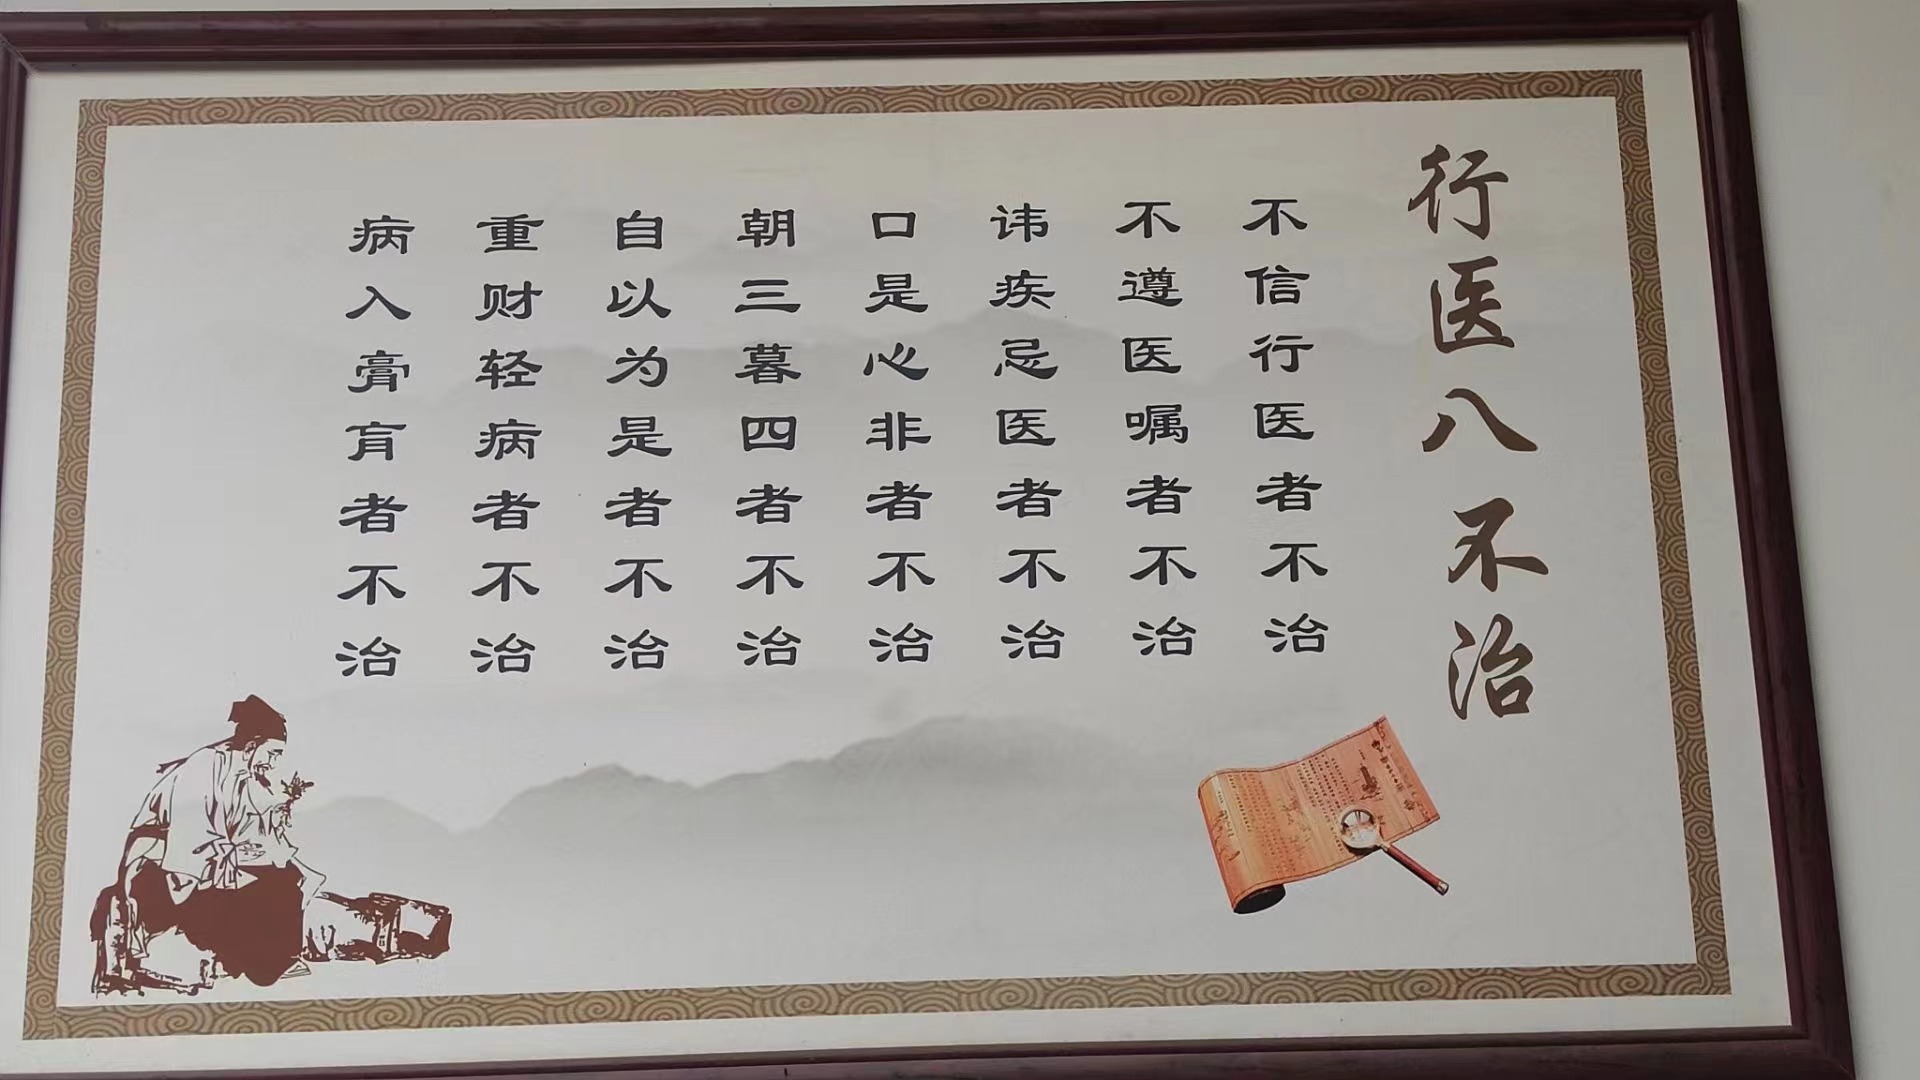 行医八不治
不信行医者不治
不遵医嘱者不治
讳疾忌医者不治
口是心非者不治
朝三暮四者不治
自以为是者不治
重财轻病者不治
病入膏肓者不治